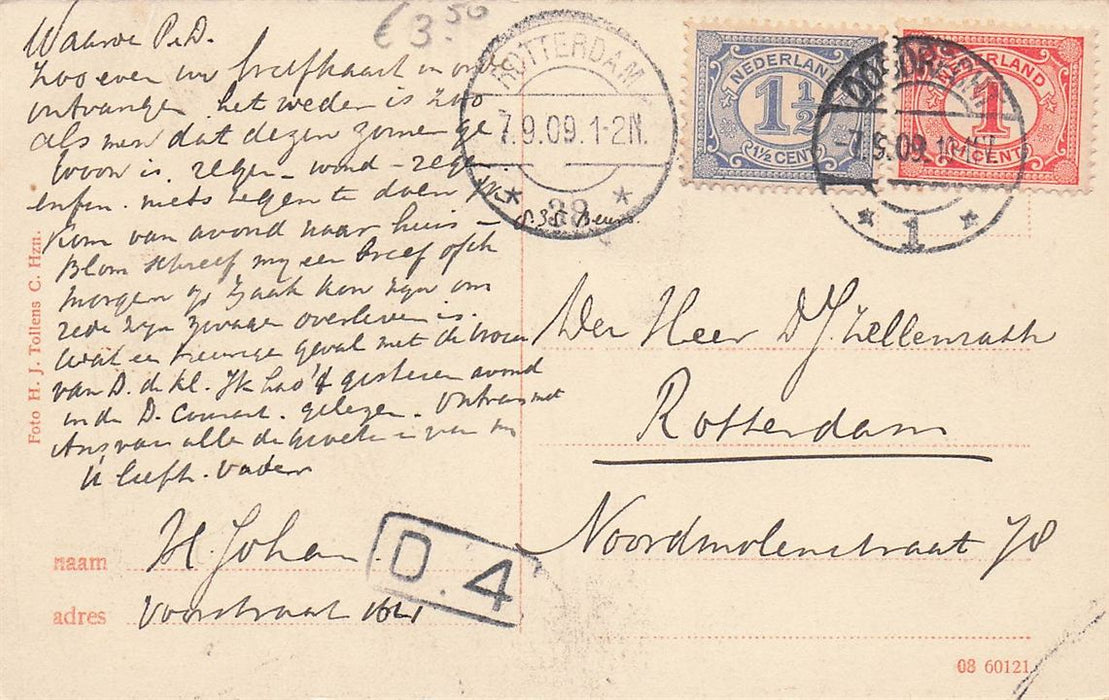 € 3.50
Waarde P. D.
Zoo even uw briefkaart in orde
ontvangen het weder is zoo
als men dat dezen zomer ge
woon is. regen - wind - regen
enfin. niets tegen te doen
Kom van avond naar huis -
Blom schreef mij een brief
morgen zaak kon zijn om
rede zijn zwager overleden is.
Wat een treurige geval met de
van D. de kl. Ik had 't gisteren avond
in de D. Courant. gelezen. Ontvang met
Ans van alle de groeten van
U liefh. Vader
ROTTERDAM
7.9.09.1-2N.
* 38 *
Beurs
NEDERLAND
1½
1½ CENT
NEDERLAND
1
1 CENT
DORDRECHT
-7.9.09.
* 1 *
Den Heer D J Wellenrath
Rotterdam
Noordmolenstraat 78
naam H. Johan
adres Voorstraat
D.4
Foto H. J. Tollens C. Hzn.
08 60121